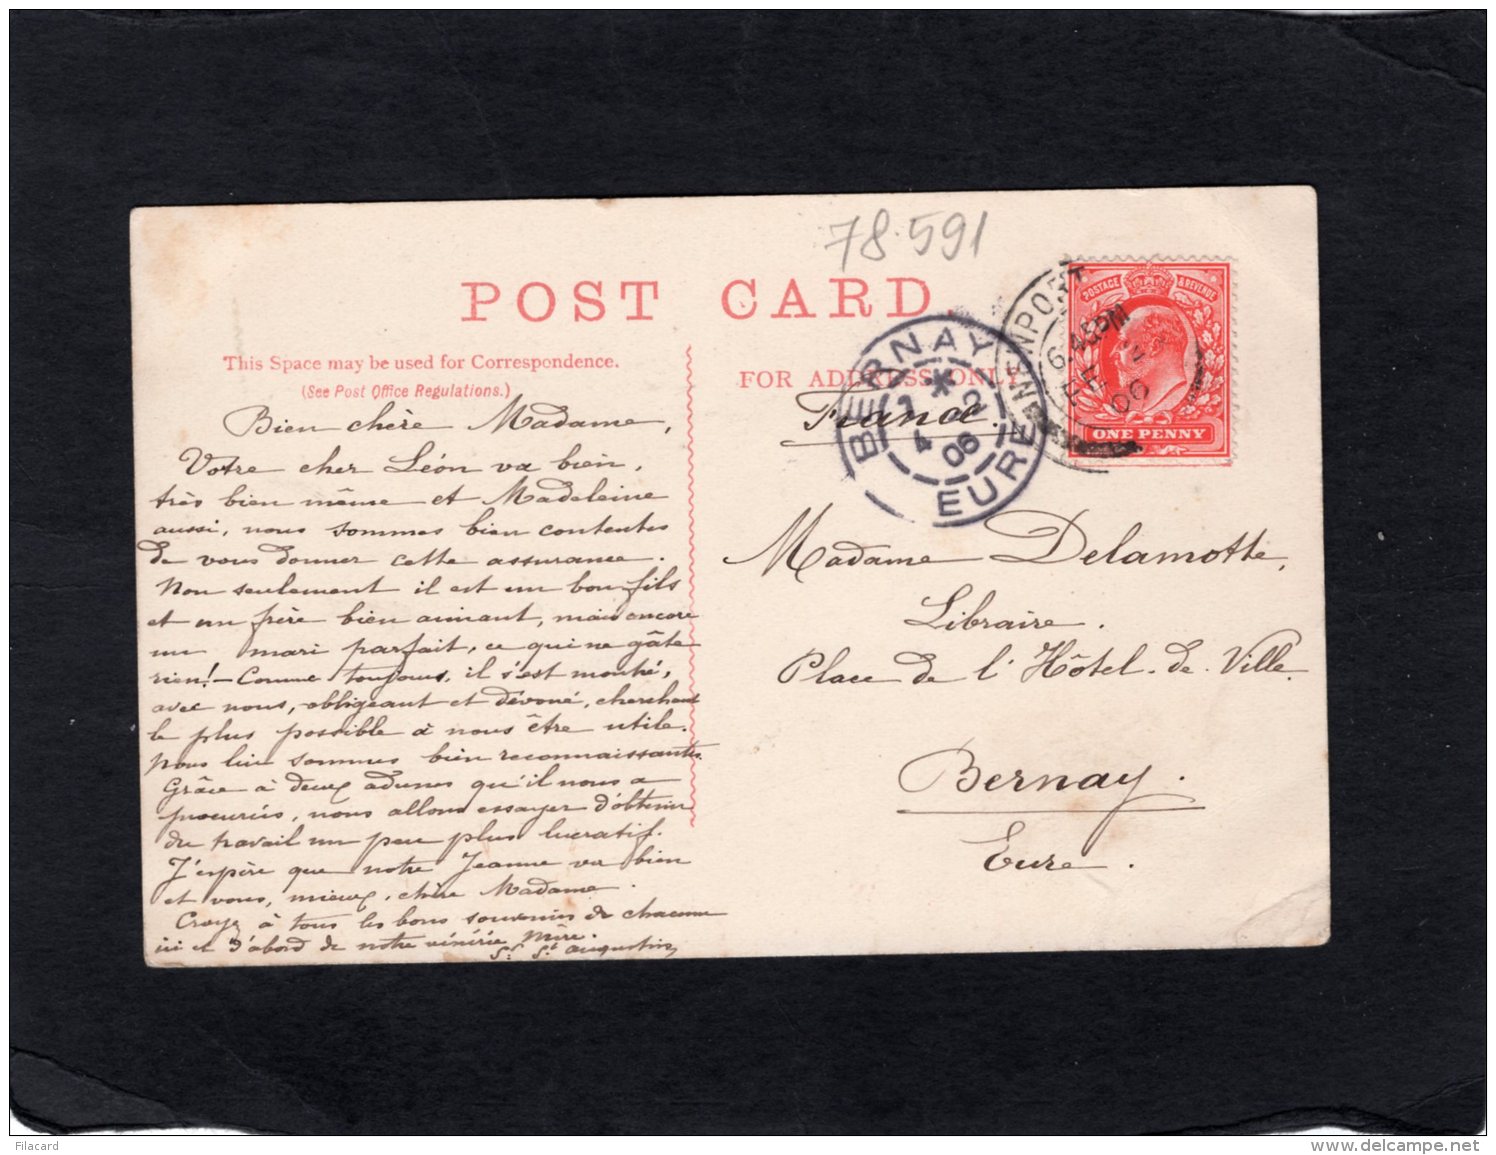 78.591
POST CARD.
This Space may be used for Correspondence.
(See Post Office Regulations.)
FOR ADDRESS ONLY
Bien chère Madame,
Votre cher Léon va bien,
très bien même et Madeleine
aussi, nous sommes bien contentes
de vous donner cette assurance.
Non seulement il est un bon fils
et un frère bien aimant, mais encore
un mari parfait, ce qui ne gâte
rien! — Comme toujours, il s'est montré,
avec nous, obligeant et dévoué, cherchant
le plus possible à nous être utile.
Nous lui sommes bien reconnaissantes.
Grâce à deux adresses qu'il nous a
procurées, nous allons essayer d'obtenir
du travail un peu plus lucratif.
J'espère que notre Jeanne va bien
et vous, mieux, chère Madame.
Croyez à tous les bons souvenirs de chacune
ici et d'abord de notre vénérée Mère.
Sr. St. Augustin
France.
Madame Delamotte,
Libraire.
Place de l'Hôtel-de-Ville.
Bernay.
Eure.
BERNAY
4 2
06
EURE
6.45PM
FE 2
06
POSTAGE & REVENUE
ONE PENNY
Filacard
www.delcampe.net